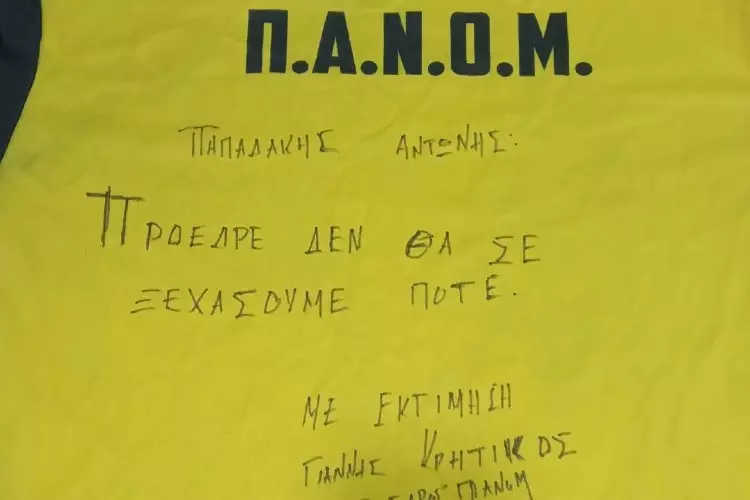 Π.Α.Ν.Ο.Μ.
ΠΑΠΑΔΑΚΗΣ ΑΝΤΩΝΗΣ:
ΠΡΟΕΔΡΕ ΔΕΝ ΘΑ ΣΕ
ΞΕΧΑΣΟΥΜΕ ΠΟΤΕ.
ΜΕ ΕΚΤΙΜΗΣΗ
ΓΙΑΝΝΗΣ ΚΡΗΤΙΚΟΣ
ΠΑΝΟΜ